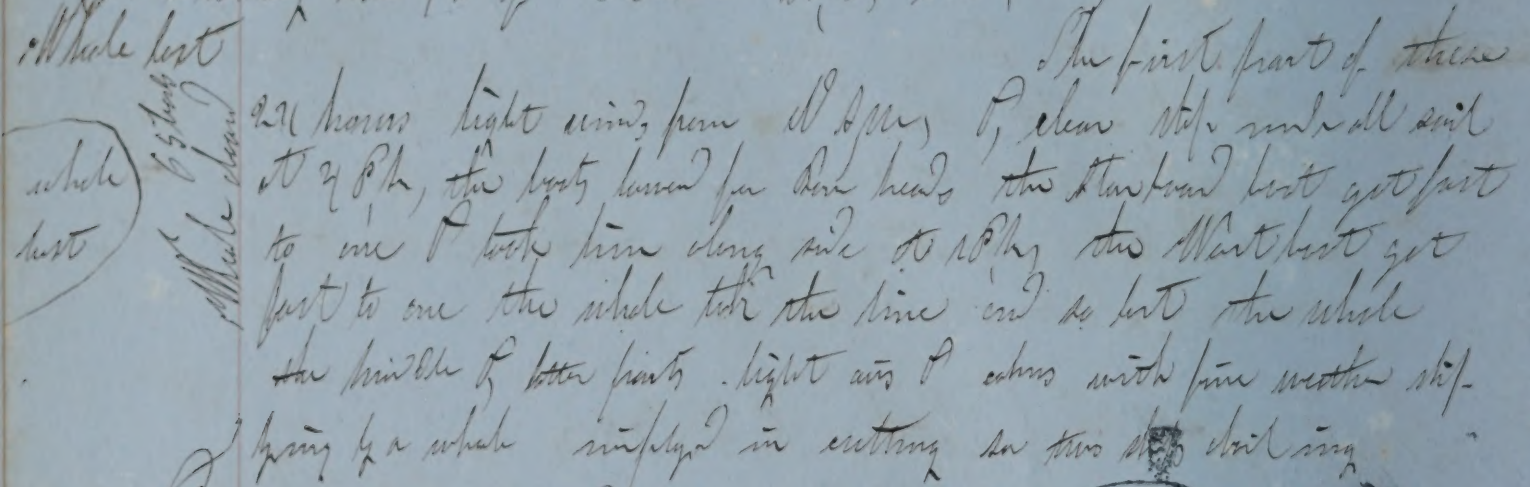 Whale lost
The first part of these
24 hours light winds from clear ship under all sail
at 4 PM, the boats lowered for Bow heads the Starboard boat got fast
to one & took him along side at PM, the Waist boat got
fast to one the whale took the line and so lost the whale
the middle & latter parts light airs & calms with fine weather ship
lying by a whale employd in cutting so this day boiling
whale
lost
65
Whale